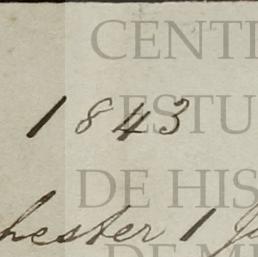 CENT
1843
ESTU
DE HIS
hester 1 J
DE M